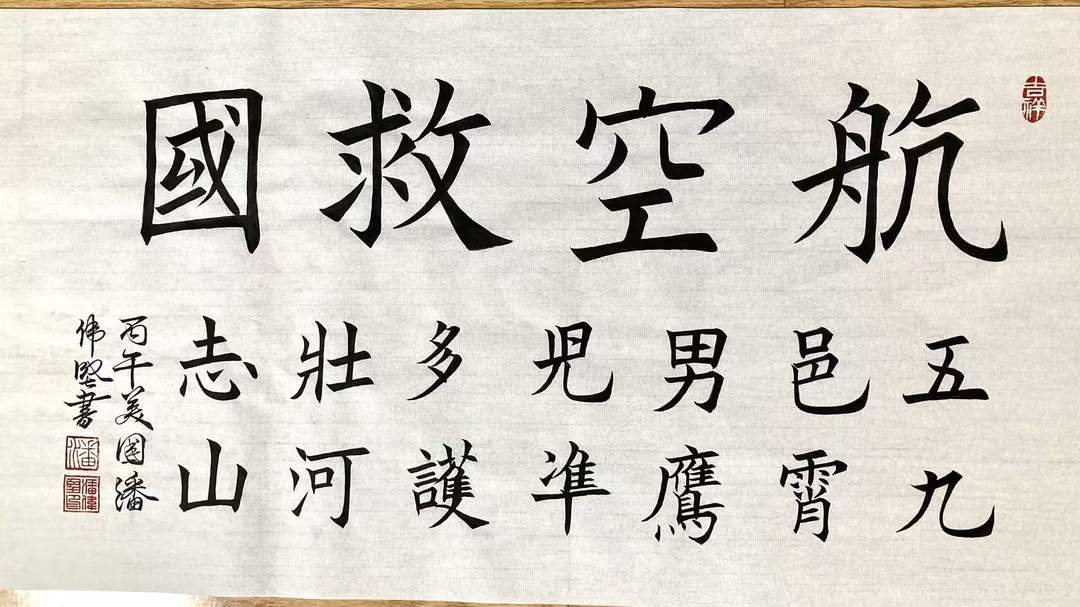 吉祥
航空救國
五邑男兒多壯志
九霄鷹凖護河山
丙午美國潘
伟堅書
潘